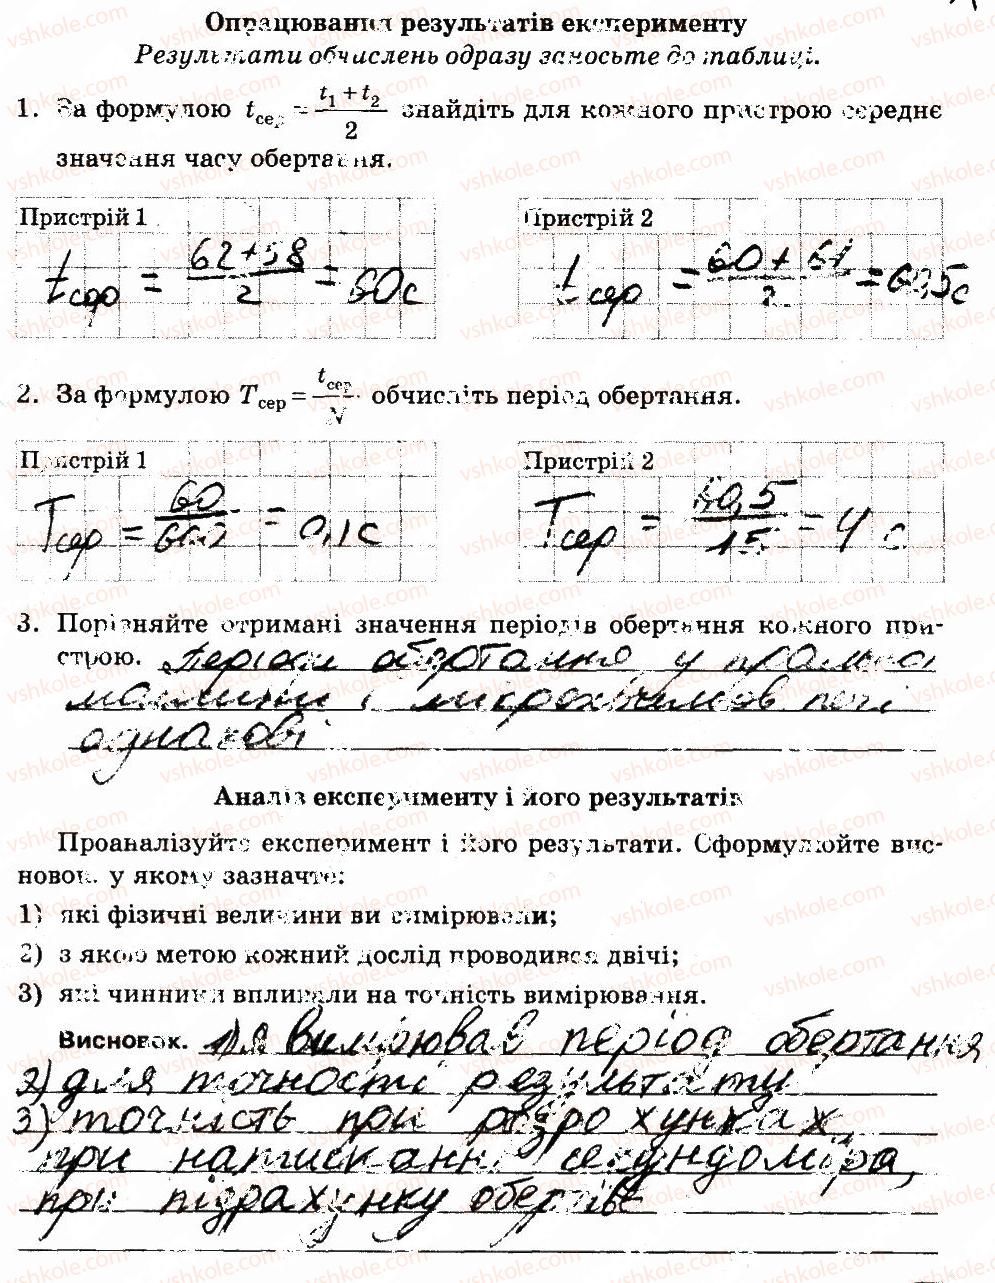 Опрацювання результатів експерименту
Результати обчислень одразу заносьте до таблиці.
1. За формулою tсер = (t1 + t2)/2 знайдіть для кожного пристрою середнє
значення часу обертання.
Пристрій 1
tсер = (62+58)/2 = 60 с
Пристрій 2
tсер = (60+61)/2 = 60,5 с
2. За формулою Tсер = tсер/N обчисліть період обертання.
Пристрій 1
Tсер = 60/600 = 0,1 с
Пристрій 2
Tсер = 60,5/15 = 4 с
3. Порівняйте отримані значення періодів обертання кожного при-
строю. Періоди обертання у пральної
машини і мікрохвильов печі
однакові
Аналіз експерименту і його результатів
Проаналізуйте експеримент і його результати. Сформулюйте вис-
новок, у якому зазначте:
1) які фізичні величини ви вимірювали;
2) з якою метою кожний дослід проводився двічі;
3) які чинники впливали на точність вимірювання.
Висновок. 1) я вимірював період обертання
2) для точності результату
3) точність при розрахунках,
при натисканні секундоміра,
при підрахунку обертів
vshkole.com